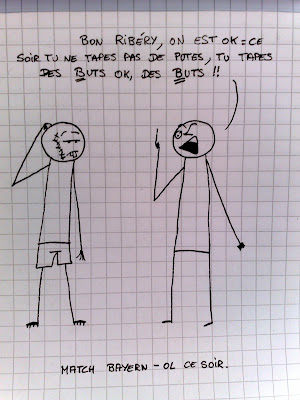 BON RIBÉRY, ON EST OK = CE
SOIR TU NE TAPES PAS DE PUTES, TU TAPES
DES BUTS OK, DES BUTS !!
MATCH BAYERN - OL CE SOIR.